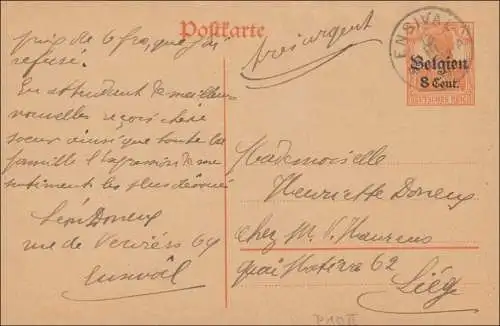 Postkarte
prix de 6 frs, que j'ai
refusé.
En attendant de meilleures
nouvelles reçois chère
soeur ainsi que toute la
famille l'expression de mes
sentiments les plus dévoués
Léon Doneux
rue de Verviers 69
Ensival
très urgent
ENSIVAL
Belgien
8 Cent.
DEUTSCHES REICH
Mademoiselle
Henriette Doneux
chez M. V.
quai 62
Liége
P10 II